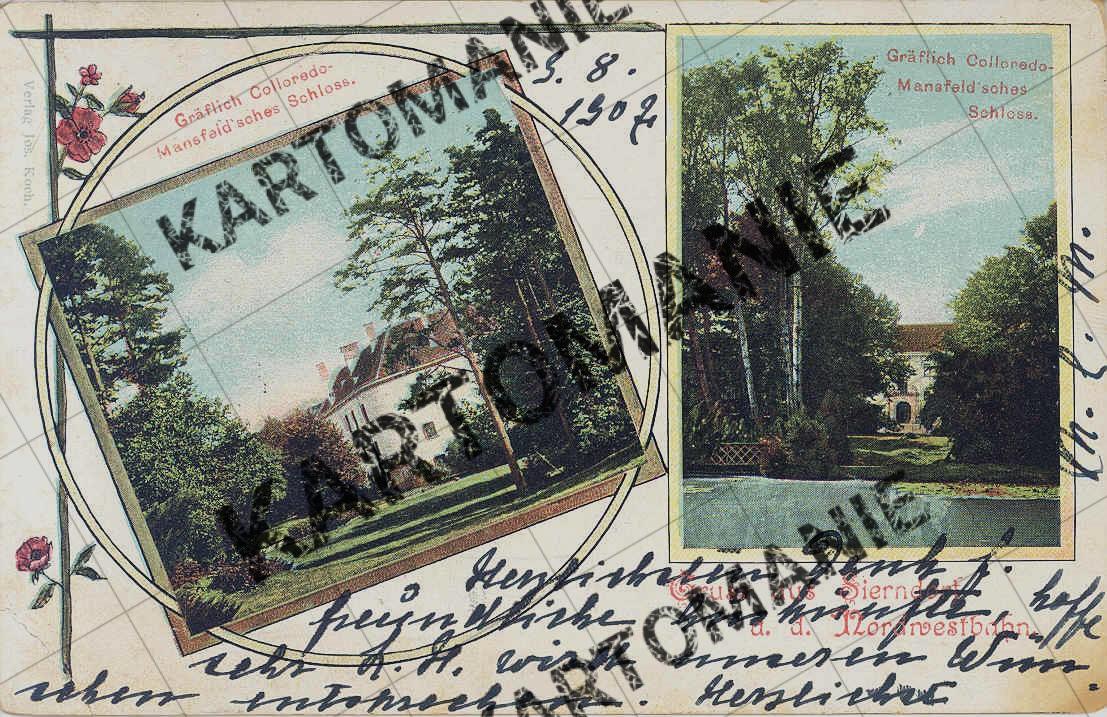 Gräflich Colloredo-
Mansfeld'sches Schloss.
3. 8.
1907
Gräflich Colloredo-
Mansfeld'sches
Schloss.
Verlag Jos. Koch.
Gruss aus Sierndorf
a. d. Nordwestbahn.
Herzlichsten Dank f.
freundliche Auskünfte, hoffe
sehr d. H. wird unseren Wün-
schen entsprechen. Herzlichst
KARTOMANIE
KARTOMANIE
KARTOMANIE
KARTOMANIE
KARTOMANIE